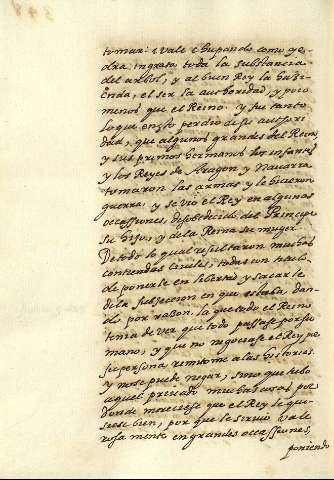 tomar: i vale chupando como ye-
dra ingrata toda la substancia
del arbol, y al buen Rey la hazi-
enda, el ser la authoridad, y poco
menos que el Reino. y fue tanto
lo que en esto perdio de su auttori
dad, que algunos grandes del Reino,
y sus primos hermanos los infantes
y los Reyes de Aragon y Navarra
tomaron las armas, y le hicieron
guerra; y se vio el Rey en algunas
occassiones, desobedecido del Principe
su hijo, y de la Reina su muger
De todo lo qual resultaron muchas
contiendas civiles, todas con titulo
de ponerle en libertad y sacarle
de la subjecion en que estaba, dan-
do por raçon. la que todo el Reino
tenia de ver que todo passasse por su
mano, y que no negociasse el Rey por
su persona remitome a las historias
y no se puede negar, sino que hubo
aquel privado muchas cosas por
donde mereciesse que el Rey le qui-
siesse bien, por que le sirvio vale
rosamente en grandes occassiones,
poniendo